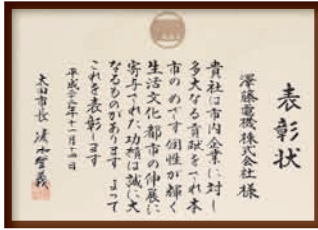 表彰状
澤藤電機株式会社 様
貴社は市内企業に対し
多大なる貢献をされ本
市のめざす個性が輝く
生活文化都市の伸展に
寄与された功績は誠に大
なるものがあります よって
これを表彰します
平成二十年十一月十四日
太田市長 清水聖義